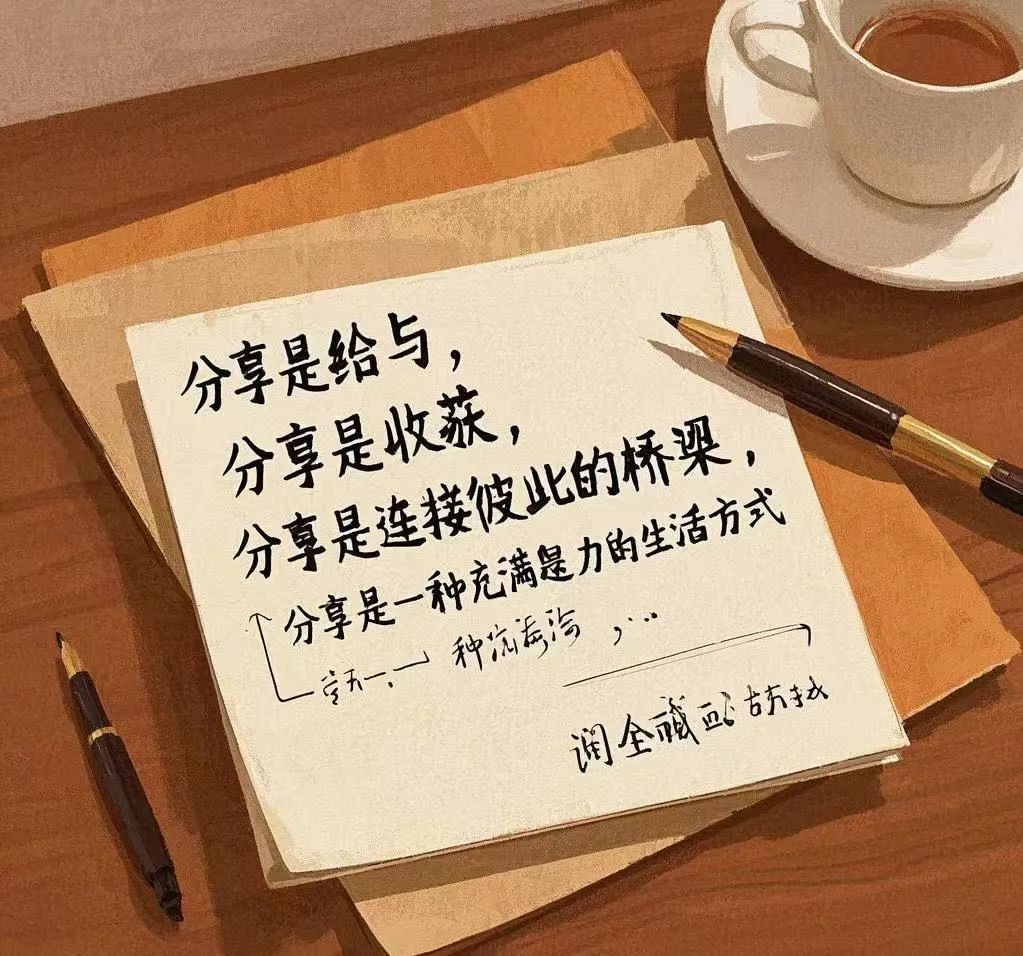 分享是给与，
分享是收获，
分享是连接彼此的桥梁，
分享是一种充满力的生活方式
一种
全